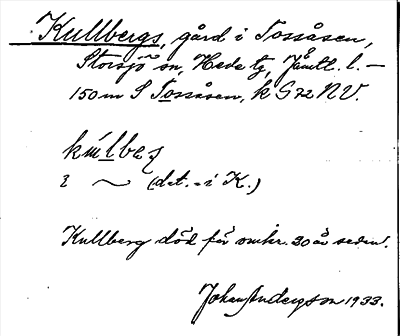 Kullbergs, gård i Tossåsen,
Storsjö sn, Hede tg, Jämtl. l. –
150 m S Tossåsen, k G 72 NV.
kúlbeʒ
i ~ (det. = i K.)
Kullberg död för omkr. 30 år sedan.
Johan Anderson 1933.